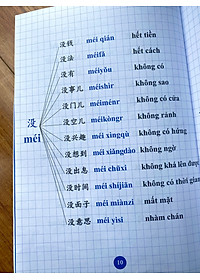 没钱 méi qián hết tiền
没法 méifǎ hết cách
没有 méiyǒu không có
没事儿 méishìr không sao
没门儿 méiménr không có cửa
没空儿 méikòngr không rảnh
没兴趣 méi xìngqù không có hứng
没 méi
没想到 méi xiǎngdào không ngờ
没出息 méi chūxi không khá lên được
没时间 méi shíjiān không có thời gian
没面子 méi miànzi mất mặt
没意思 méi yìsi nhàm chán
10